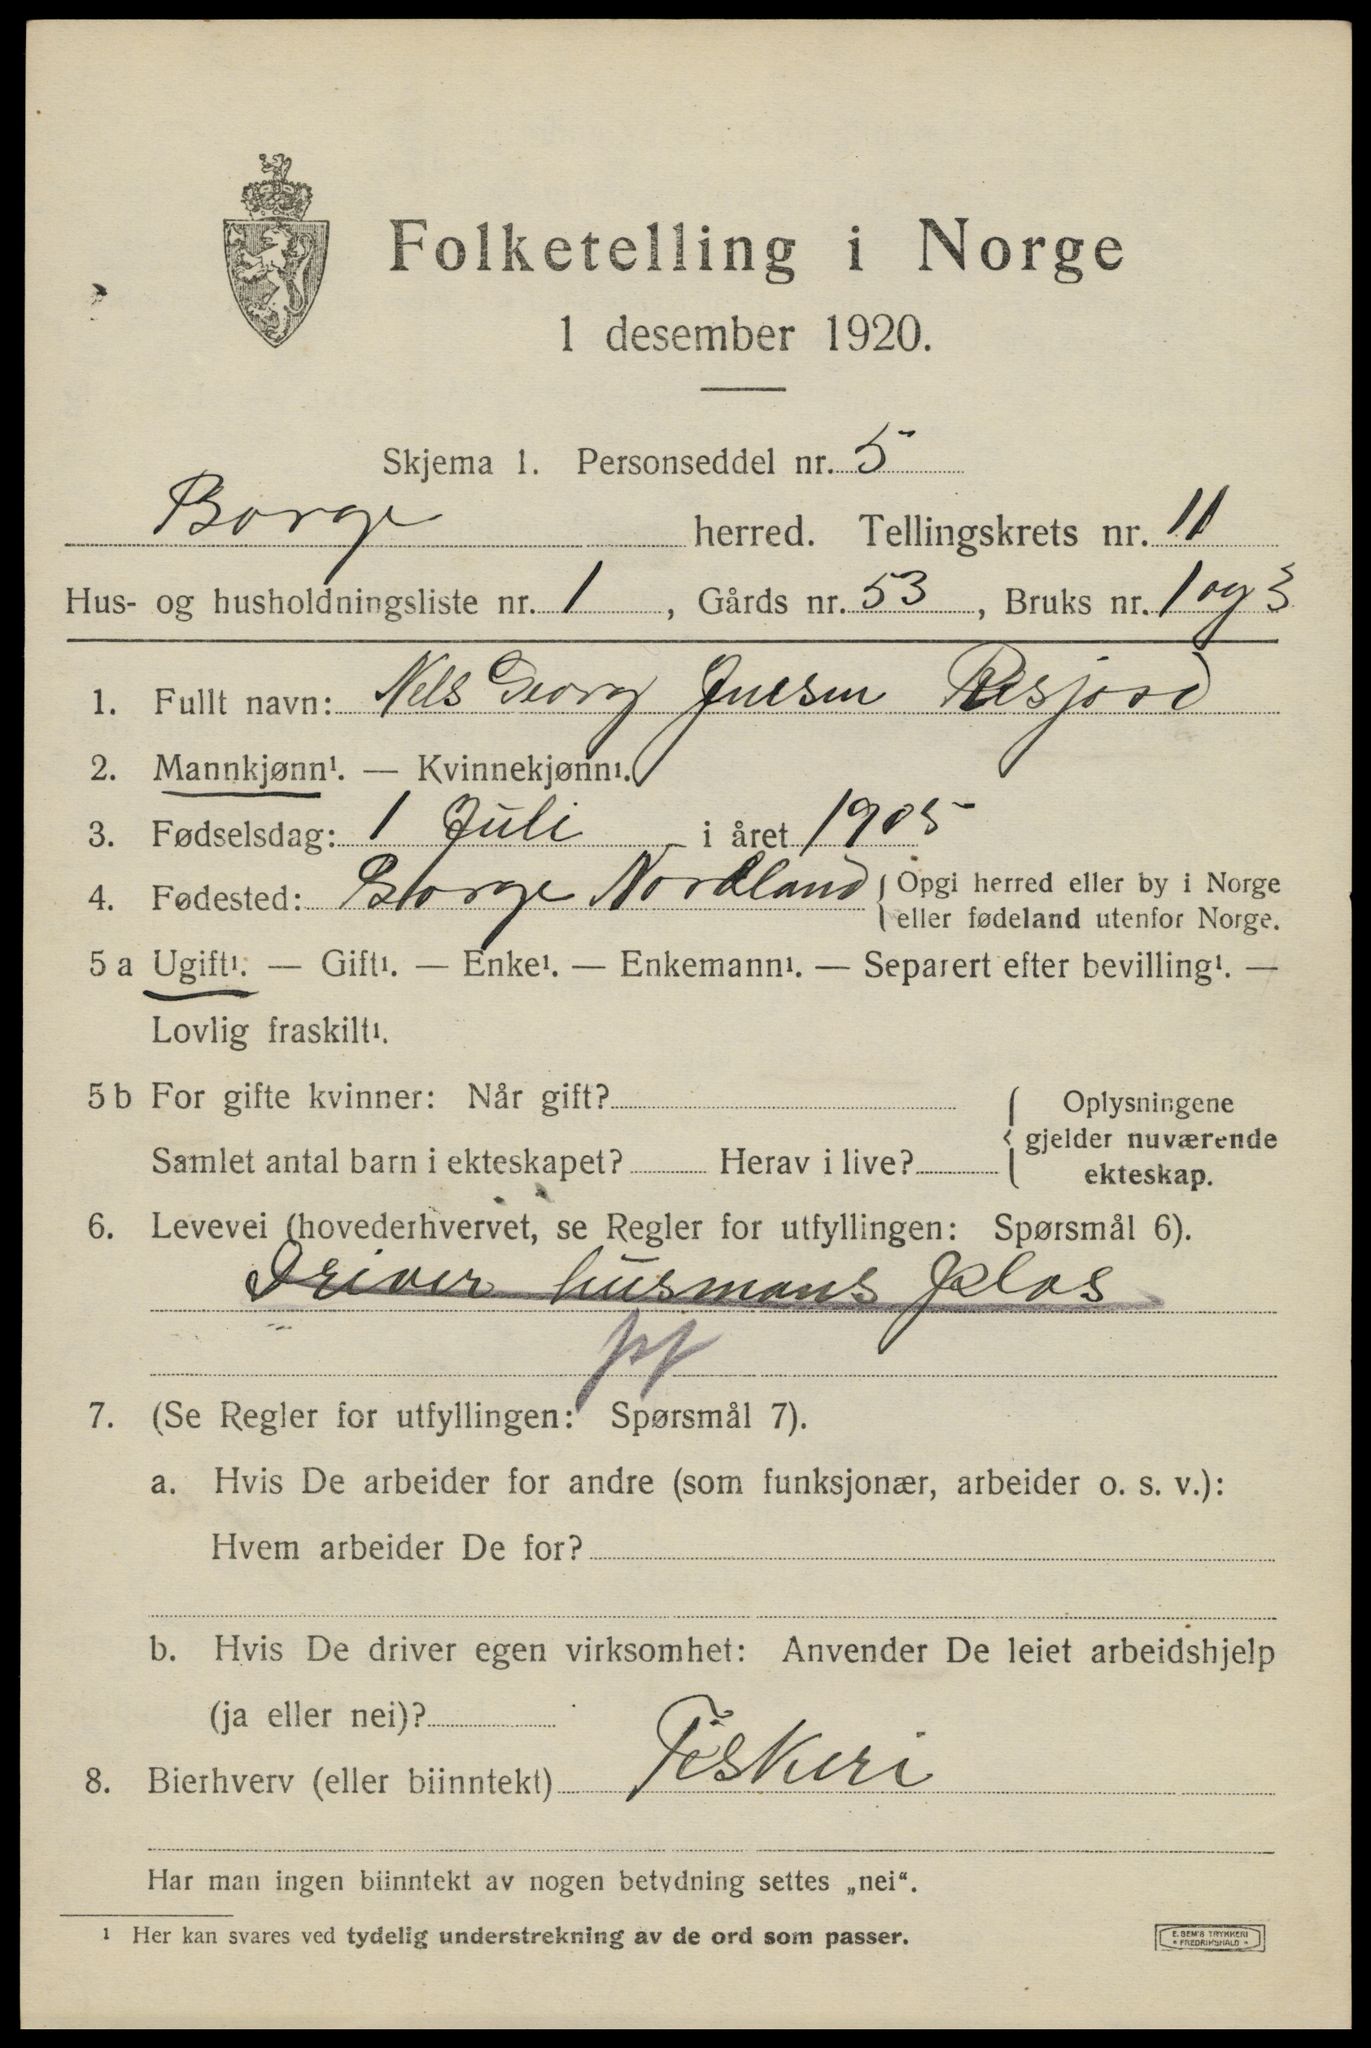 Folketelling i Norge
1 desember 1920.
Skjema 1. Personseddel nr. 5
Borge herred. Tellingskrets nr. 11
Hus- og husholdningsliste nr. 1, Gårds nr. 53, Bruks nr. 1 og 3
1. Fullt navn: Nils Georg Jensen
2. Mannkjønn¹. — Kvinnekjønn¹.
3. Fødselsdag: 1 Juli i året 1905
4. Fødested: Borge Nordland { Opgi herred eller by i Norge
eller fødeland utenfor Norge.
5 a Ugift¹. — Gift¹. — Enke¹. — Enkemann¹. — Separert efter bevilling¹. —
Lovlig fraskilt¹.
5 b For gifte kvinner: Når gift?
Samlet antal barn i ekteskapet? Herav i live?
{ Oplysningene
gjelder nuværende
ekteskap.
6. Levevei (hovederhvervet, se Regler for utfyllingen: Spørsmål 6).
Driver husmans plas
7. (Se Regler for utfyllingen: Spørsmål 7).
a. Hvis De arbeider for andre (som funksjonær, arbeider o. s. v.):
Hvem arbeider De for?
b. Hvis De driver egen virksomhet: Anvender De leiet arbeidshjelp
(ja eller nei)?
8. Bierhverv (eller biinntekt) Fiskeri
Har man ingen biinntekt av nogen betydning settes „nei“.
¹ Her kan svares ved tydelig understrekning av de ord som passer.
E. SEM'S TRYKKERI
• FREDRIKSHALD •